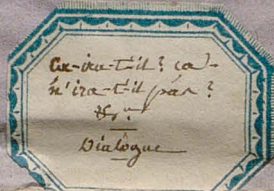 Ça-ira-t-il? ça-
n'ira-t-il pas?
&c.a
Dialogue